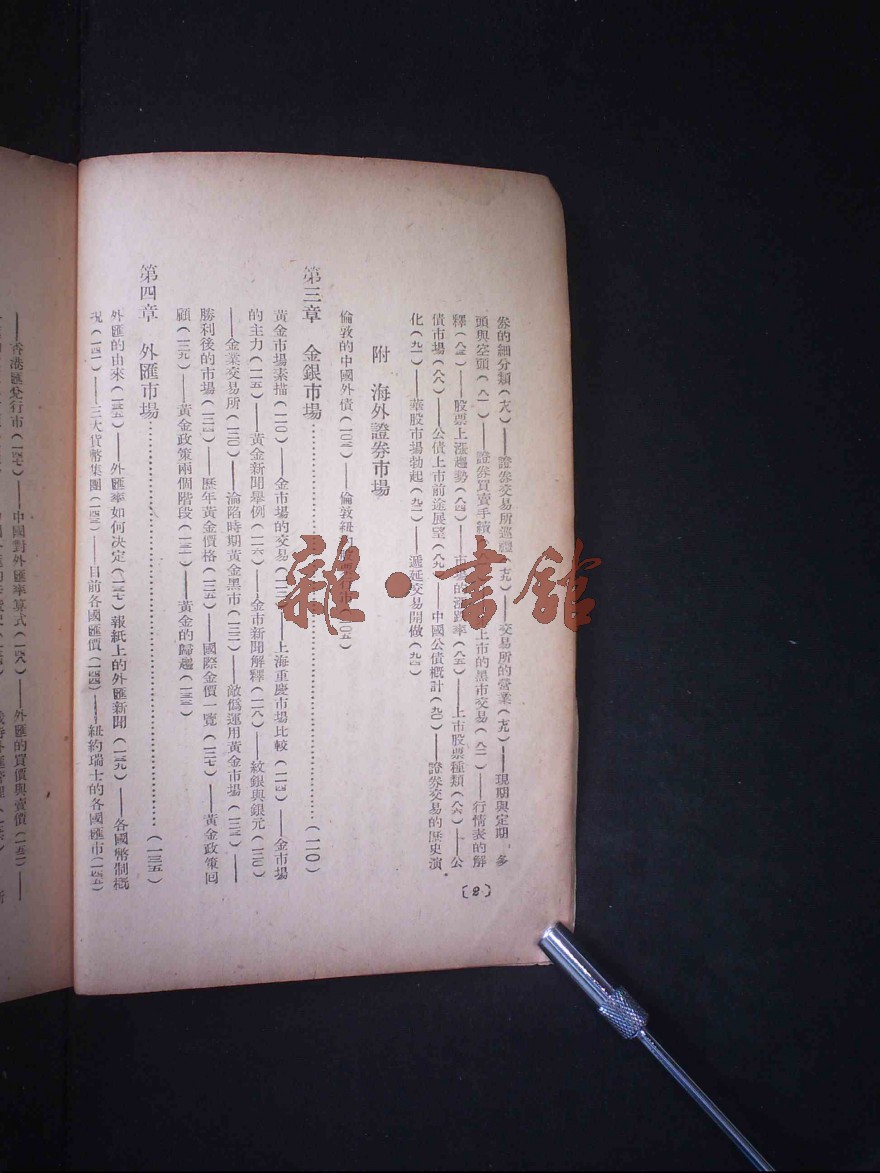 券的細分類(七八)——證券交易所巡禮(七九)——交易所的營業(七九)——現期與定期,多
頭與空頭(八一)——證券買賣手續 上市的黑市交易(八二)——行情表的解
釋(八三)——股票上漲趨勢(八四)——市場的漲跌率(八五)——上市股票種類(八六)——公
債市場(八八)——公債上市前途展望(八九)——中國公債概計(九〇)——證券交易的歷史演
化(九一)——華股市場勃起(九二)——遞延交易開做(九四)
附 海外證券市場
倫敦的中國外債(一〇三)——倫敦紐約 (一〇五)
第三章 金銀市場……(一一〇)
黃金市場素描(一一〇)——金市場的交易(一一三)——上海重慶市場比較(一一四)——金市場
的主力(一一五)——黃金新聞舉例(一一六)——金市新聞解釋(一一八)——紋銀與銀元(一二〇)
——金業交易所(一二〇)——淪陷時期黃金黑市(一二二)——敵偽運用黃金市場(一二三)——
勝利後的市場(一二四)——歷年黃金價格(一二五)——國際金價一覽(一二七)——黃金政策回
顧(一二九)——黃金政策兩個階段(一三一)——黃金的歸趨(一三三)
第四章 外匯市場……(一三五)
外匯的由來(一三五)——外匯率如何決定(一三七)報紙上的外匯新聞(一三九)——各國幣制概
況(一四一)——三大貨幣集團(一四三)——目前各國匯價(一四四)——紐約瑞士的各國匯市(一四五)
——香港匯兌行市(一四七)——中國對外匯率算式(一四八)——外匯的買價與賣價(一五一)——
〔8〕
雜·書館